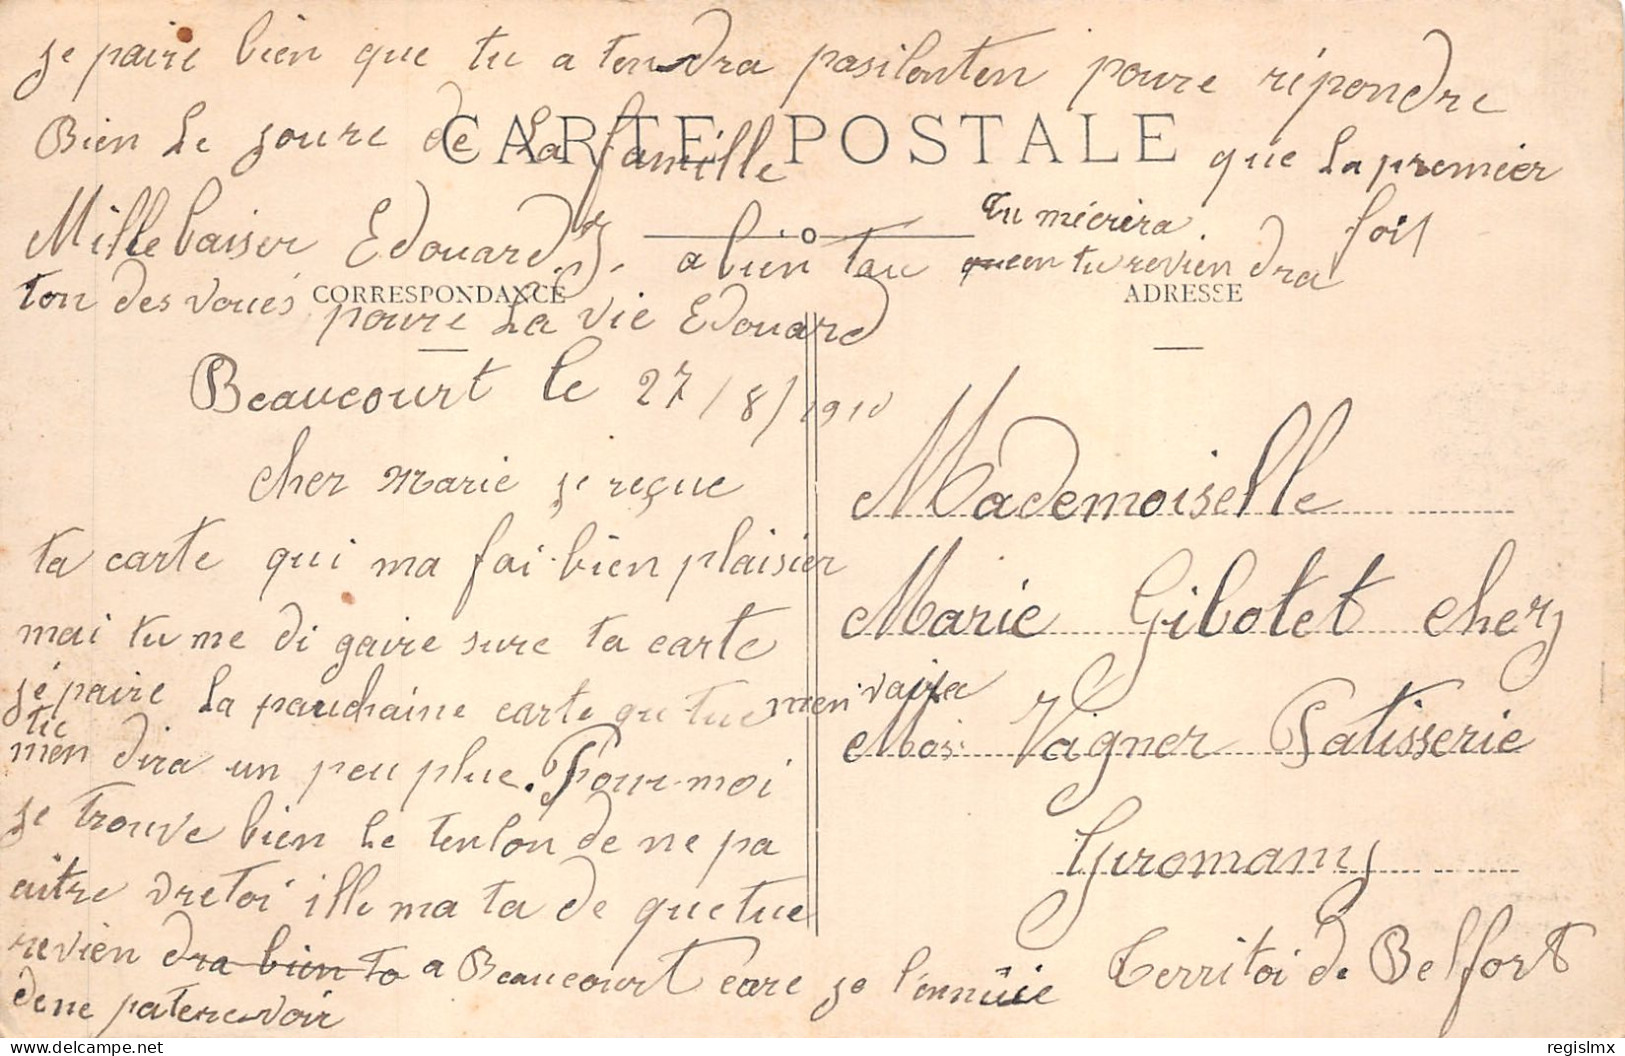 je paire bien que tu a tendra pasilonten poure répondre
CARTE POSTALE
Bien Le joure de La famille que La premier
foil
Mille baiser Edouard. J. a bien tau quen tu revien dra
tu mécrira
ton des voués poure La vie Edouard
CORRESPONDANCE
ADRESSE
Beaucourt le 27/8/1910
cher Marie je reçue
ta carte qui ma fai bien plaisier
mai tu me di gaire sure ta carte
jé paire La pauchaine carte qu tue men vaira
tu
mén dira un peu plue. Pour moi
je trouve bien Le tenlon de ne pa
aitre vretoi ille ma ta de que tue
revien dra bien to a Beaucourt care je l'ennuie
de ne pa te revoir
Mademoiselle
Marie Gibotet cherz
Mos: Vagner Patisserie
Giromany
Territoi de Belfort
regislmx